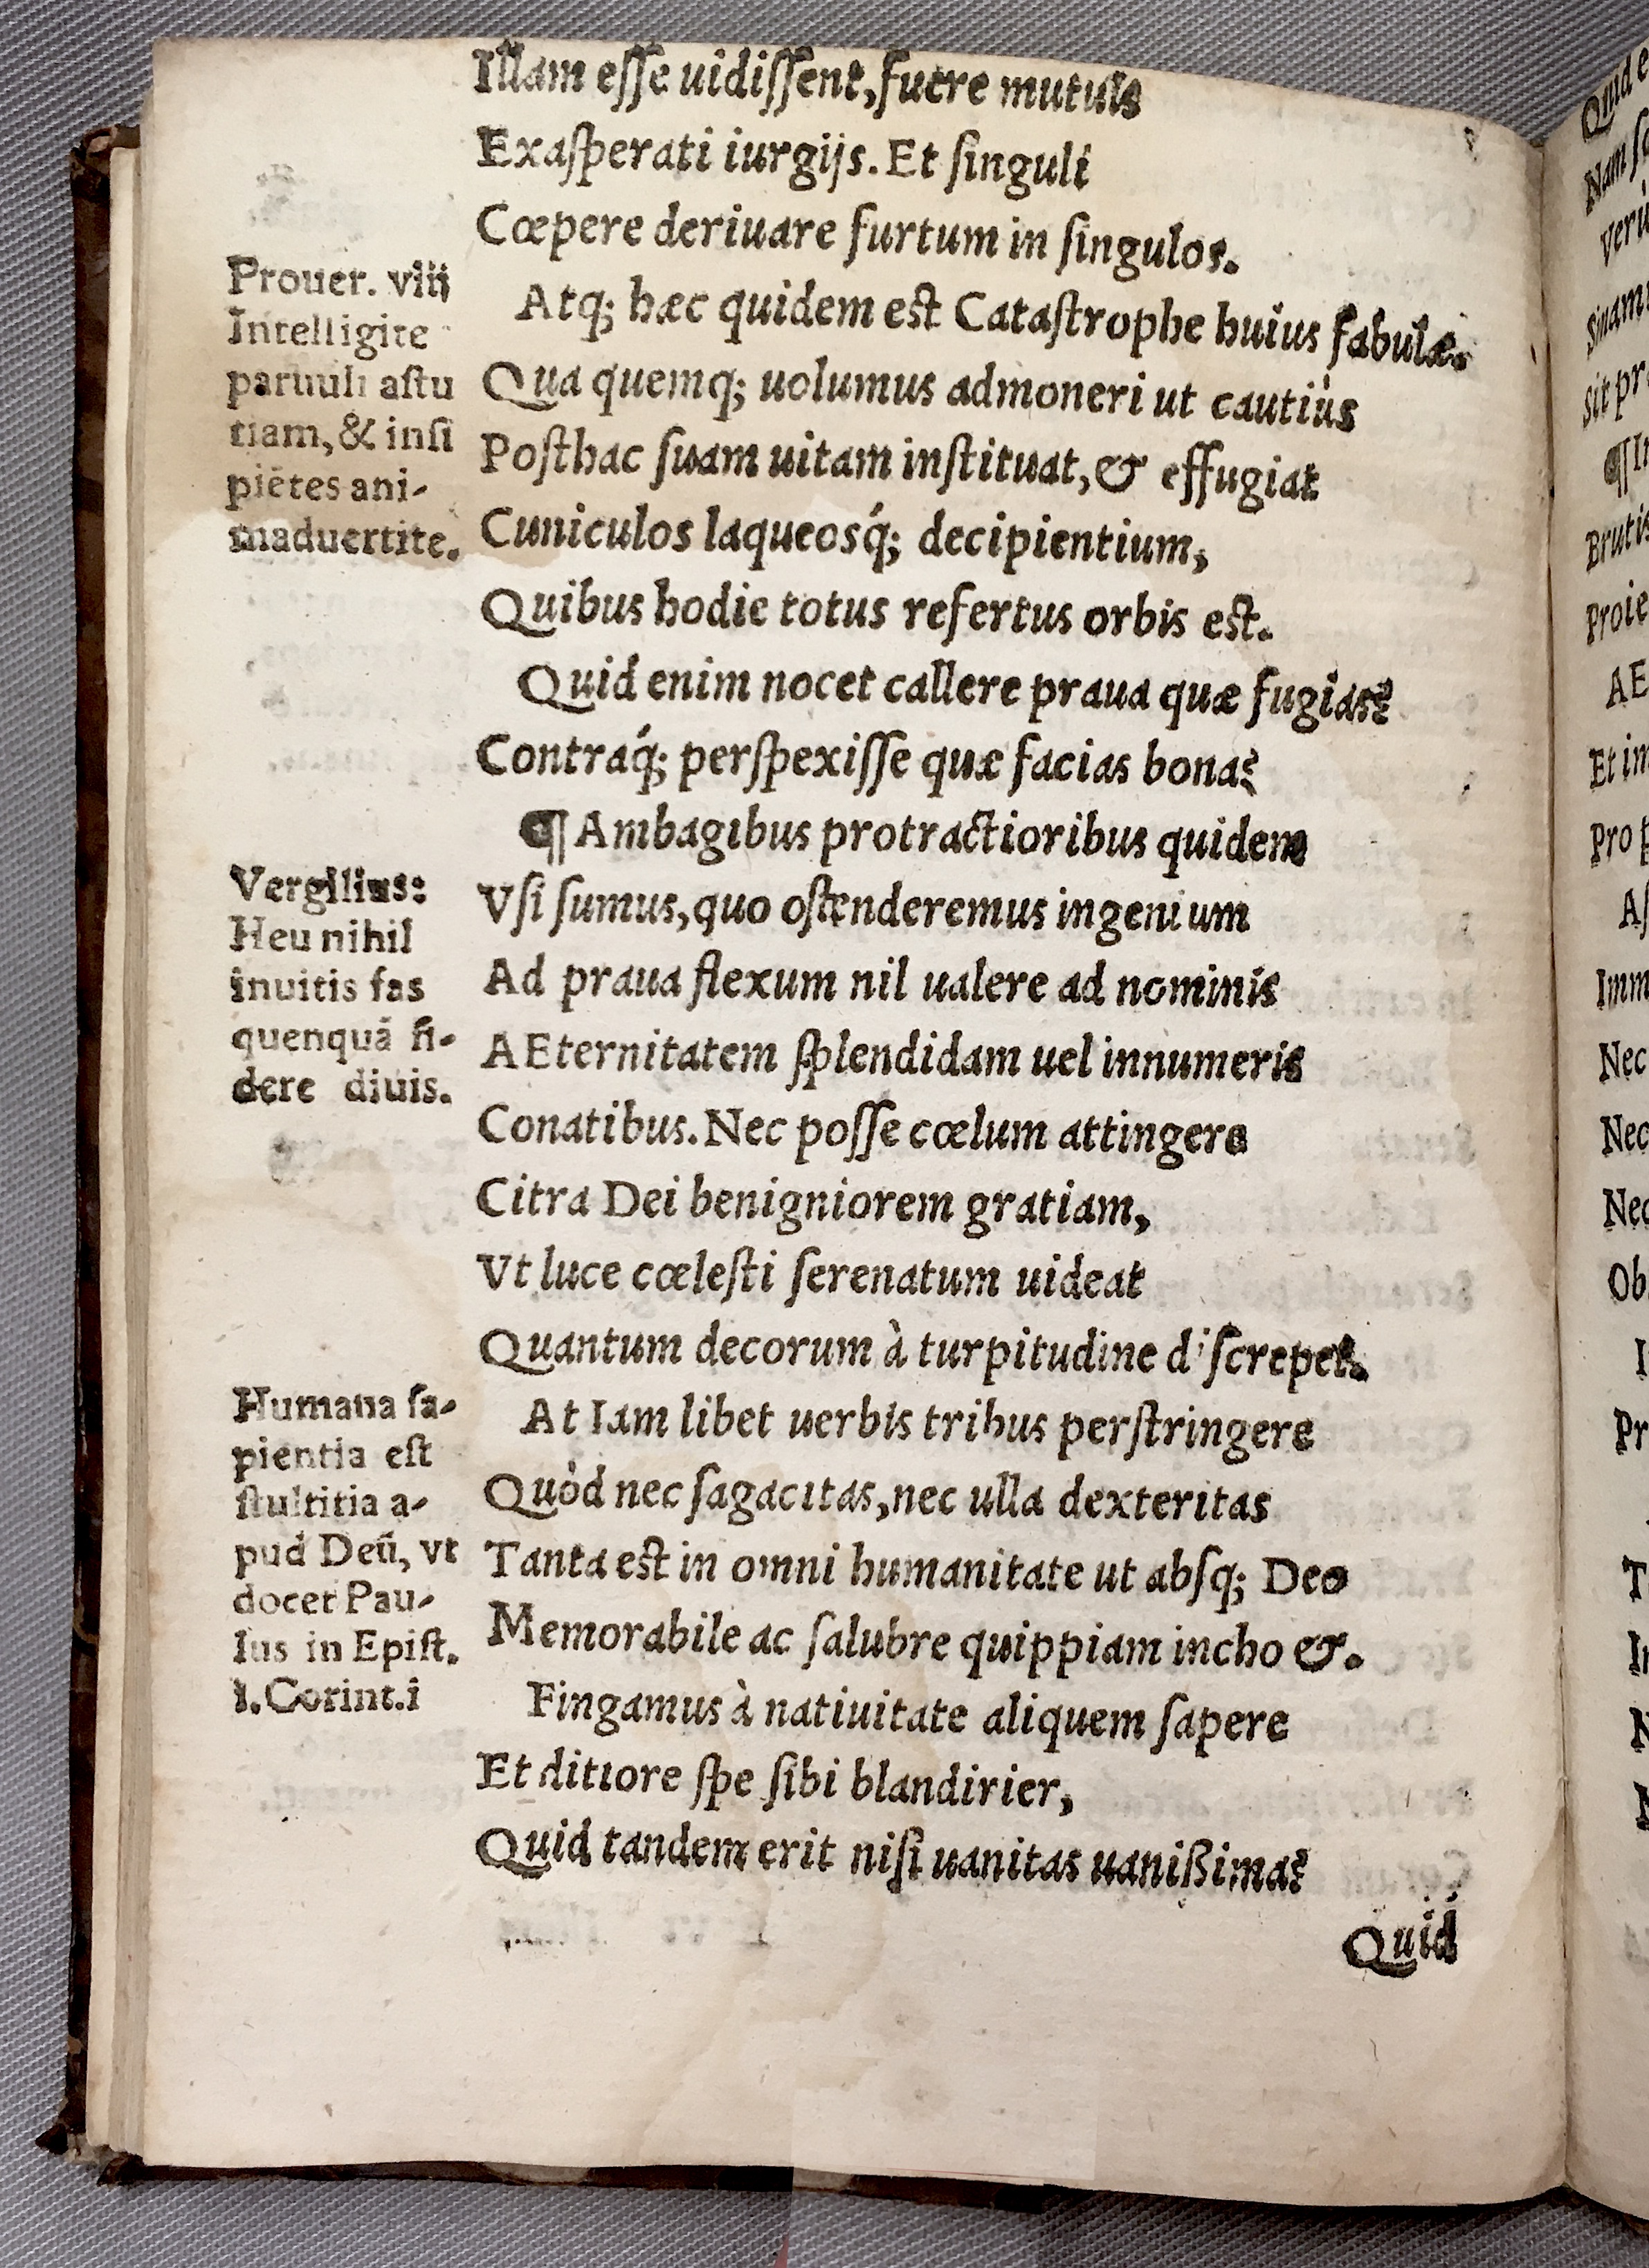 Illam eſſe uidiſſent, fuere mutuis
Exaſperati iurgijs. Et ſinguli
Cœpere deriuare furtum in ſingulos.
Atq; hæc quidem eſt Cataſtrophe huius fabulæ.
Qua quemq; uolumus admoneri ut cautiùs
Poſthac ſuam uitam inſtituat, & effugiat
Cuniculos laqueosq́; decipientium,
Quibus hodie totus refertus orbis eſt.
Quid enim nocet callere praua quæ fugias?
Contraq́; perſpexiſſe quæ facias bona?
¶ Ambagibus protractioribus quidem
Vſi ſumus, quo oſtenderemus ingenium
Ad praua flexum nil ualere ad nominis
AEternitatem ſplendidam uel innumeris
Conatibus. Nec poſſe cœlum attingere
Citra Dei benigniorem gratiam,
Vt luce cœleſti ſerenatum uideat
Quantum decorum à turpitudine diſcrepet.
At Iam libet uerbis tribus perſtringere
Quòd nec ſagacitas, nec ulla dexteritas
Tanta eſt in omni humanitate ut abſq; Deo
Memorabile ac ſalubre quippiam incho &.
Fingamus à natiuitate aliquem ſapere
Et ditiore ſpe ſibi blandirier,
Quid tandem erit niſi uanitas uanißima?
Quid
Prouer. viij
Intelligite
paruuli aſtu
tiam, & inſi
piẽtes ani-
maduertite.
Vergilius:
Heu nihil
inuitis fas
quenquã fi-
dere diuis.
Humana ſa-
pientia eſt
ſtultitia a-
pud Deũ, vt
docet Pau-
lus in Epiſt.
1. Corint. i
Quid
Nam
Brutis
AE
Et
Pro
Nec
Nec
Nec
Ob
Pr